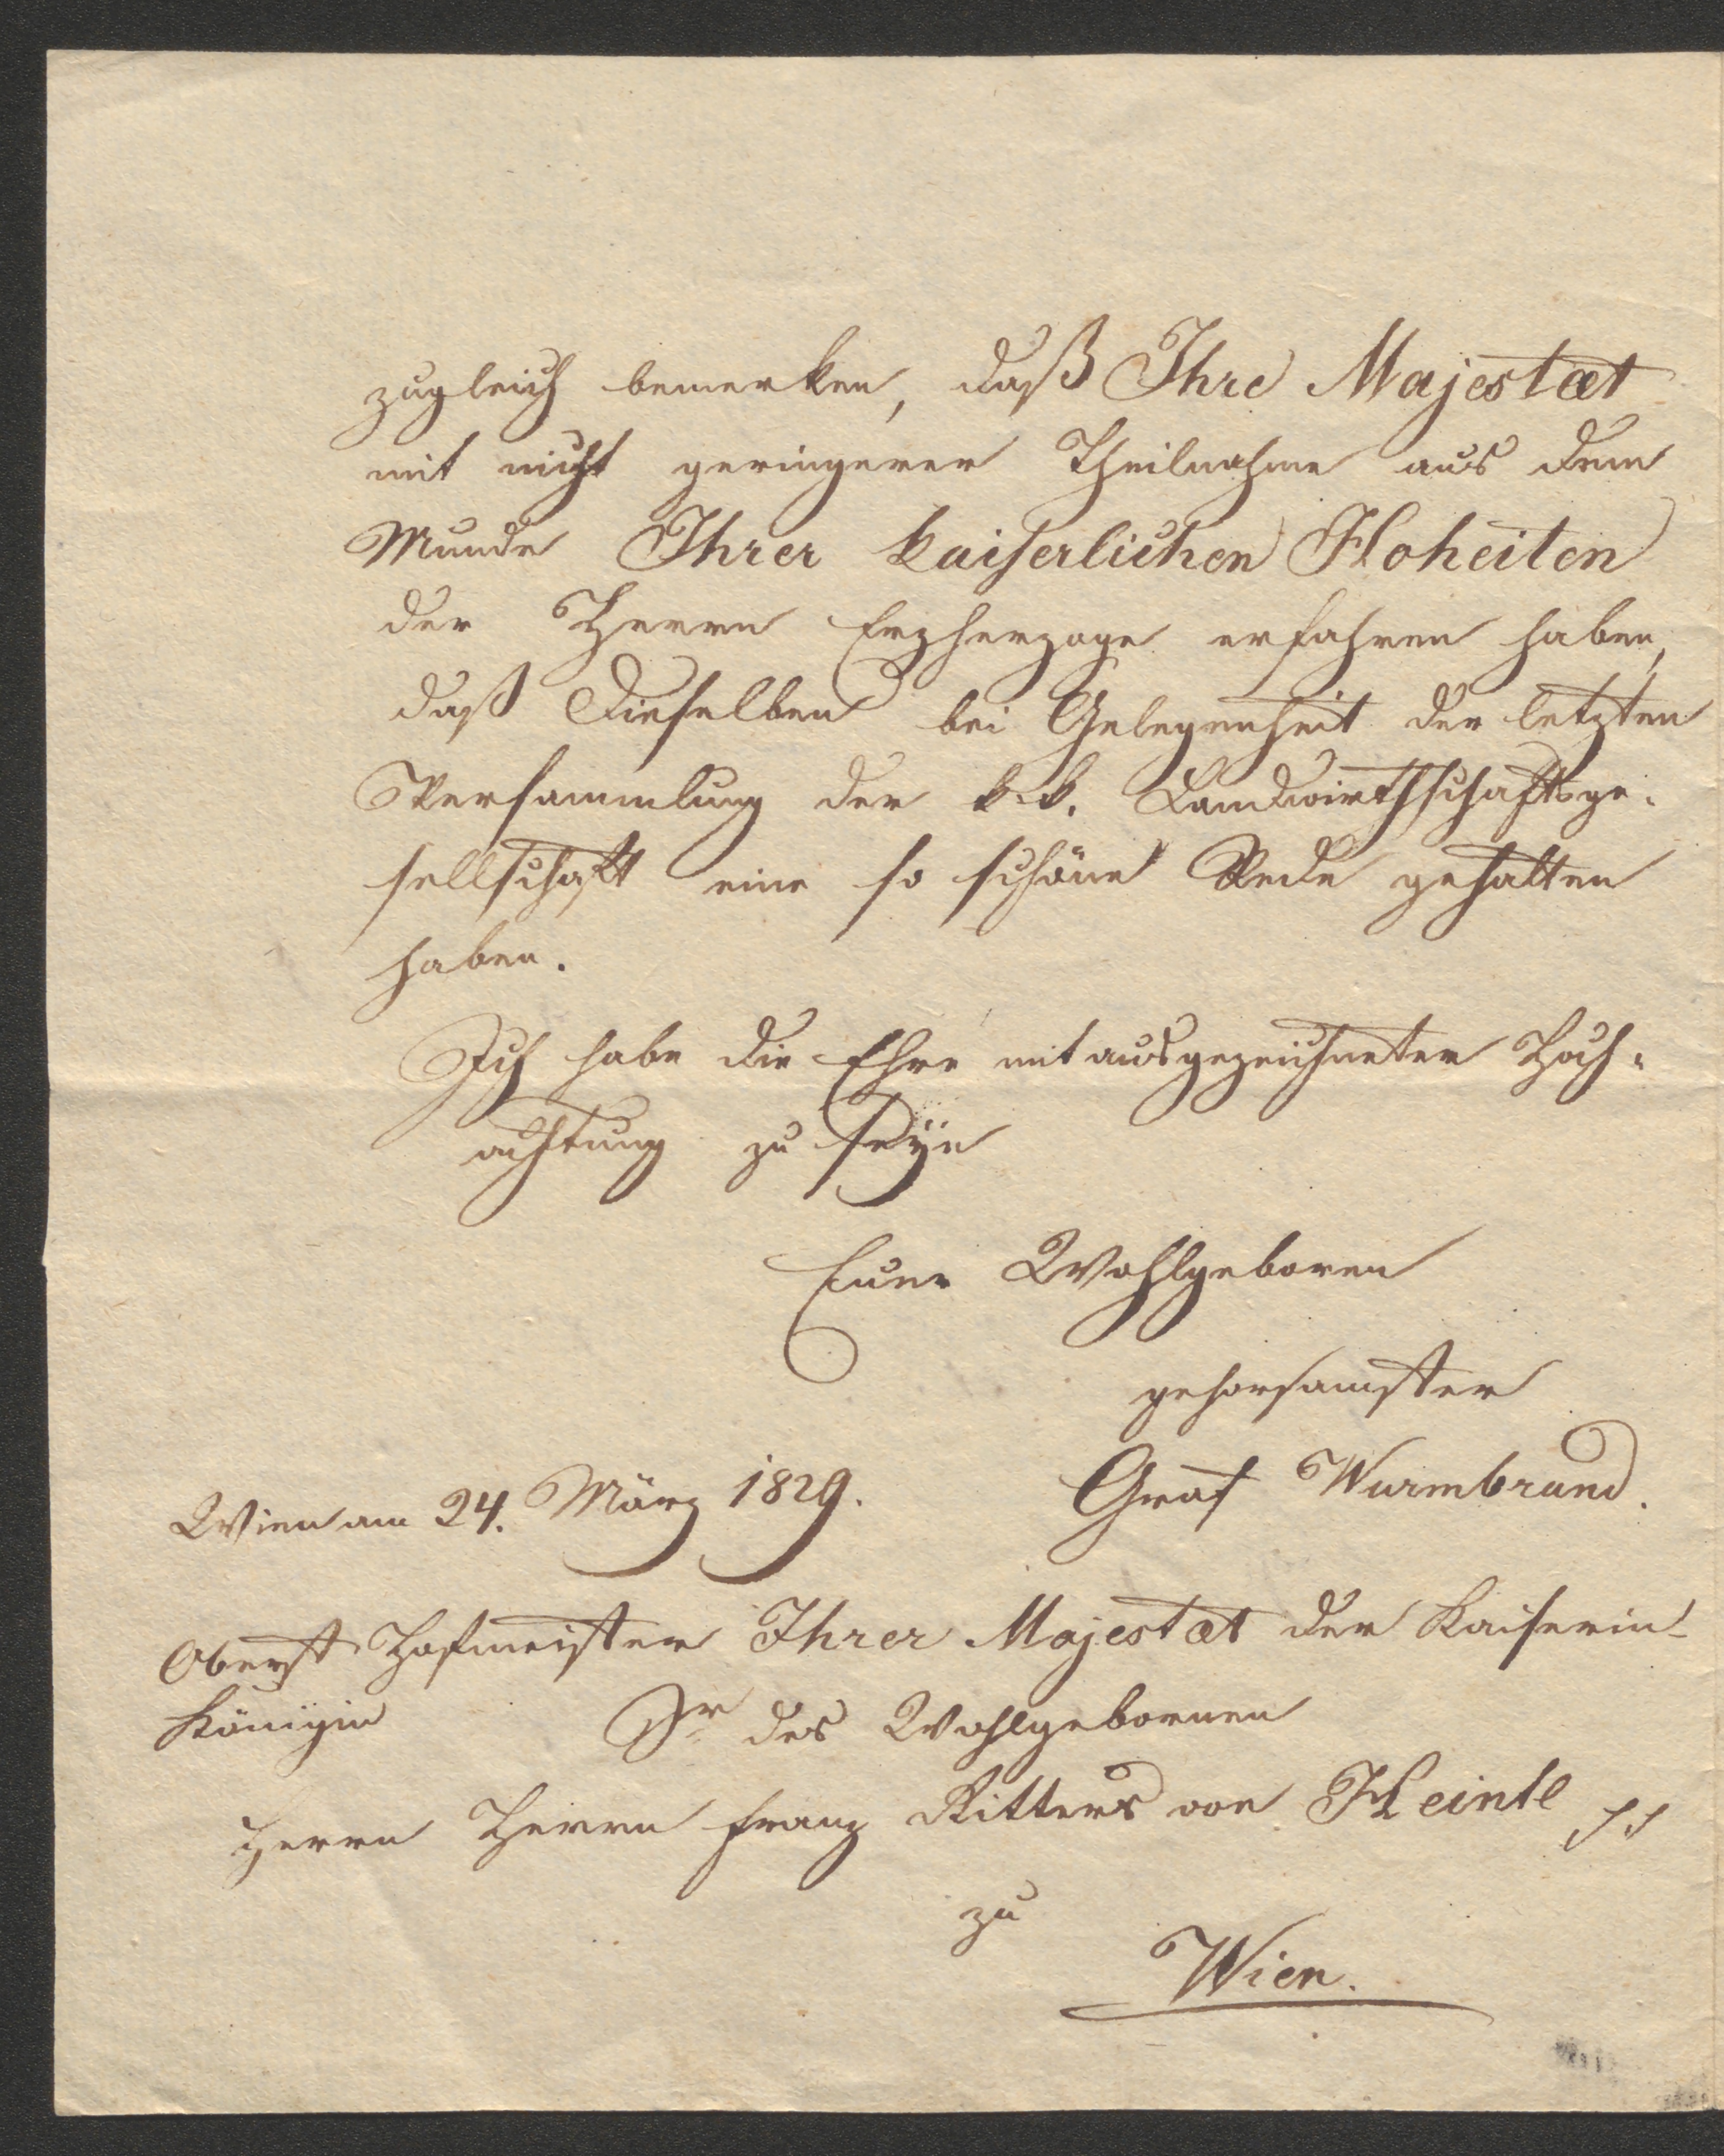 zugleich bemerken, daß Ihre Majestæt
mit nicht geringerer Theilnahme aus dem
Munde Ihrer kaiserlichen Hoheiten
der Herrn Erzherzoge erfahren haben,
daß Dieselben bei Gelegenheit der letzten
Versammlung der k.k. Landwirthschaftsge-
sellschaft eine so schöne Rede gehalten
haben.
Ich habe die Ehre mit ausgezeichneter Hoch-
achtung zu seÿn
Euer Wohlgeboren
gehorsamster
Graf Wurmbrand.
Wien am 24. März 1829.
Oberst Hofmeister Ihrer Majestæt der Kaiserin-
Königin
Sr des Wohlgebornen
Herrn Herrn Franz Ritters von Heintl
zu
Wien.